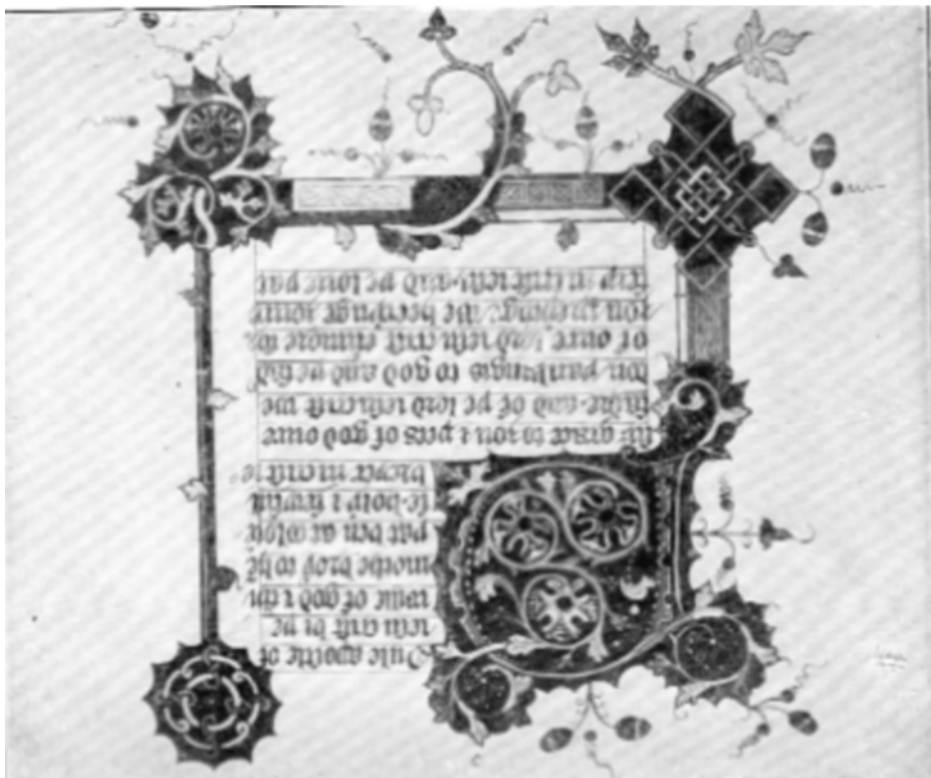 Poule apostle of
iesu crist bi þe
wille of god ⁊ ty
mothe broþ to hē
þat ben at
holy ⁊
in crist ie
su grace to ȝou ⁊ pees of god oure
and of þe lord iesu crist we
don þankyngis to god and þe fad
of oure lord iesu crist euermore
ȝou preiynge we heerynge ȝoure
feiþ in crist iesu and þe loue þat